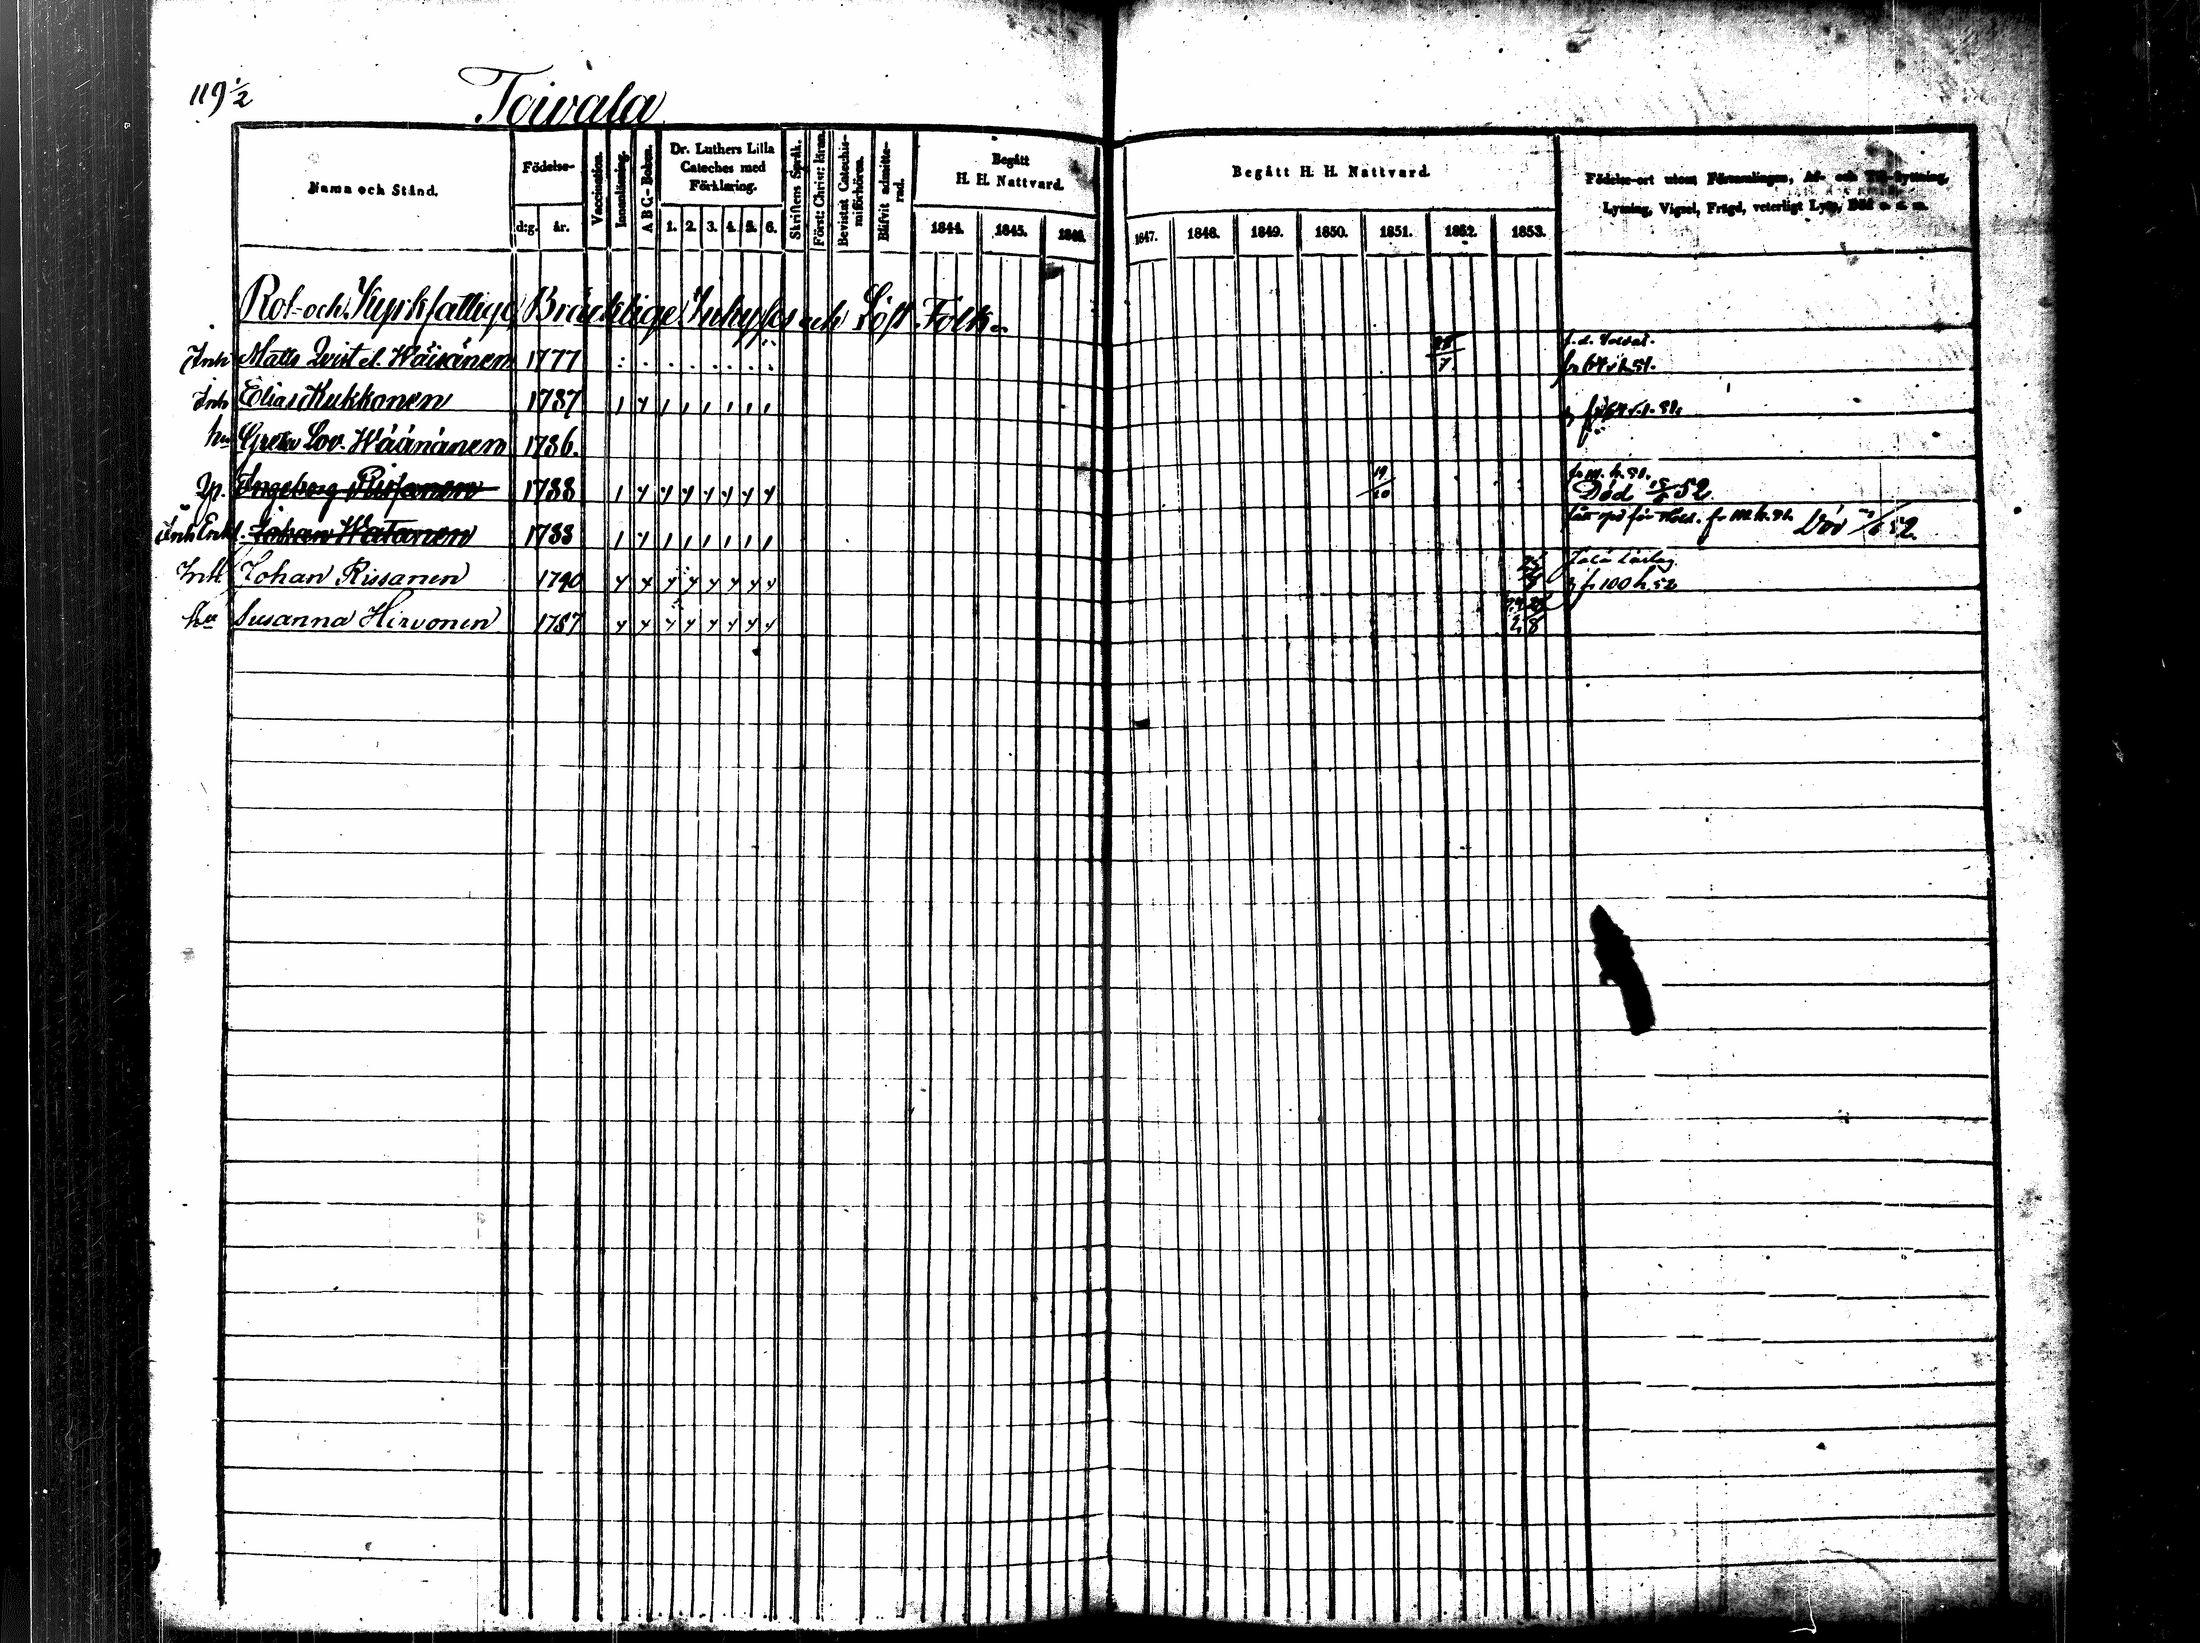 119 1/2
Toivala
Namn och Stånd.
Födelse-
d:g. år.
Vaccination.
Innanläsning.
A B C-Boken.
Dr. Luthers Lilla
Cateches med
Förklaring.
1. 2. 3. 4. 5. 6.
Skriftens Språk.
Först: Christ: läran.
Bevistat Catechis-
miförhören.
Blifvit admitte-
rad.
Begått
H. H. Nattvard.
1844. 1845. 1846.
Begått H. H. Nattvard.
1847. 1848. 1849. 1850. 1851. 1852. 1853.
Födelse-ort utom Församlingen, Af- och Till-flyttning,
Lysning, Vigsel, Frägd, veterligt Lyte, Död o. s. m.
Rot- och Kyrkfattige, Bräcklige, Inhyses och Löst Folk.
Inh Matts Qvist el. Wäisänen 1777
Inh Elias Kukkonen 1787
hu Greta Lov. Wäänänen 1786.
Ingeborg Rissanen 1788 19/10 Död 52
Inh Enkl. Johan Watanen 1788 Död 52
Inh. Johan Rissanen 1790 fr 100 h. 52
hu Susanna Hirvonen 1787